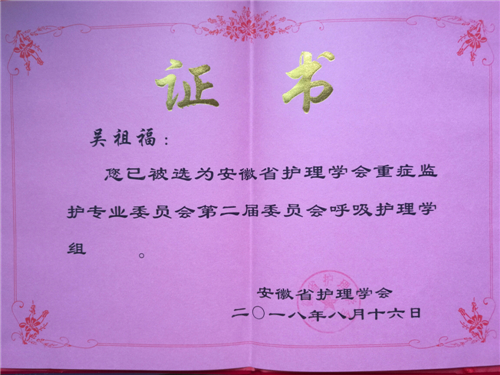 证书
吴祖福：
您已被选为安徽省护理学会重症监
护专业委员会第二届委员会呼吸护理学
组　　。
安徽省护理学会
二〇一八年八月十六日